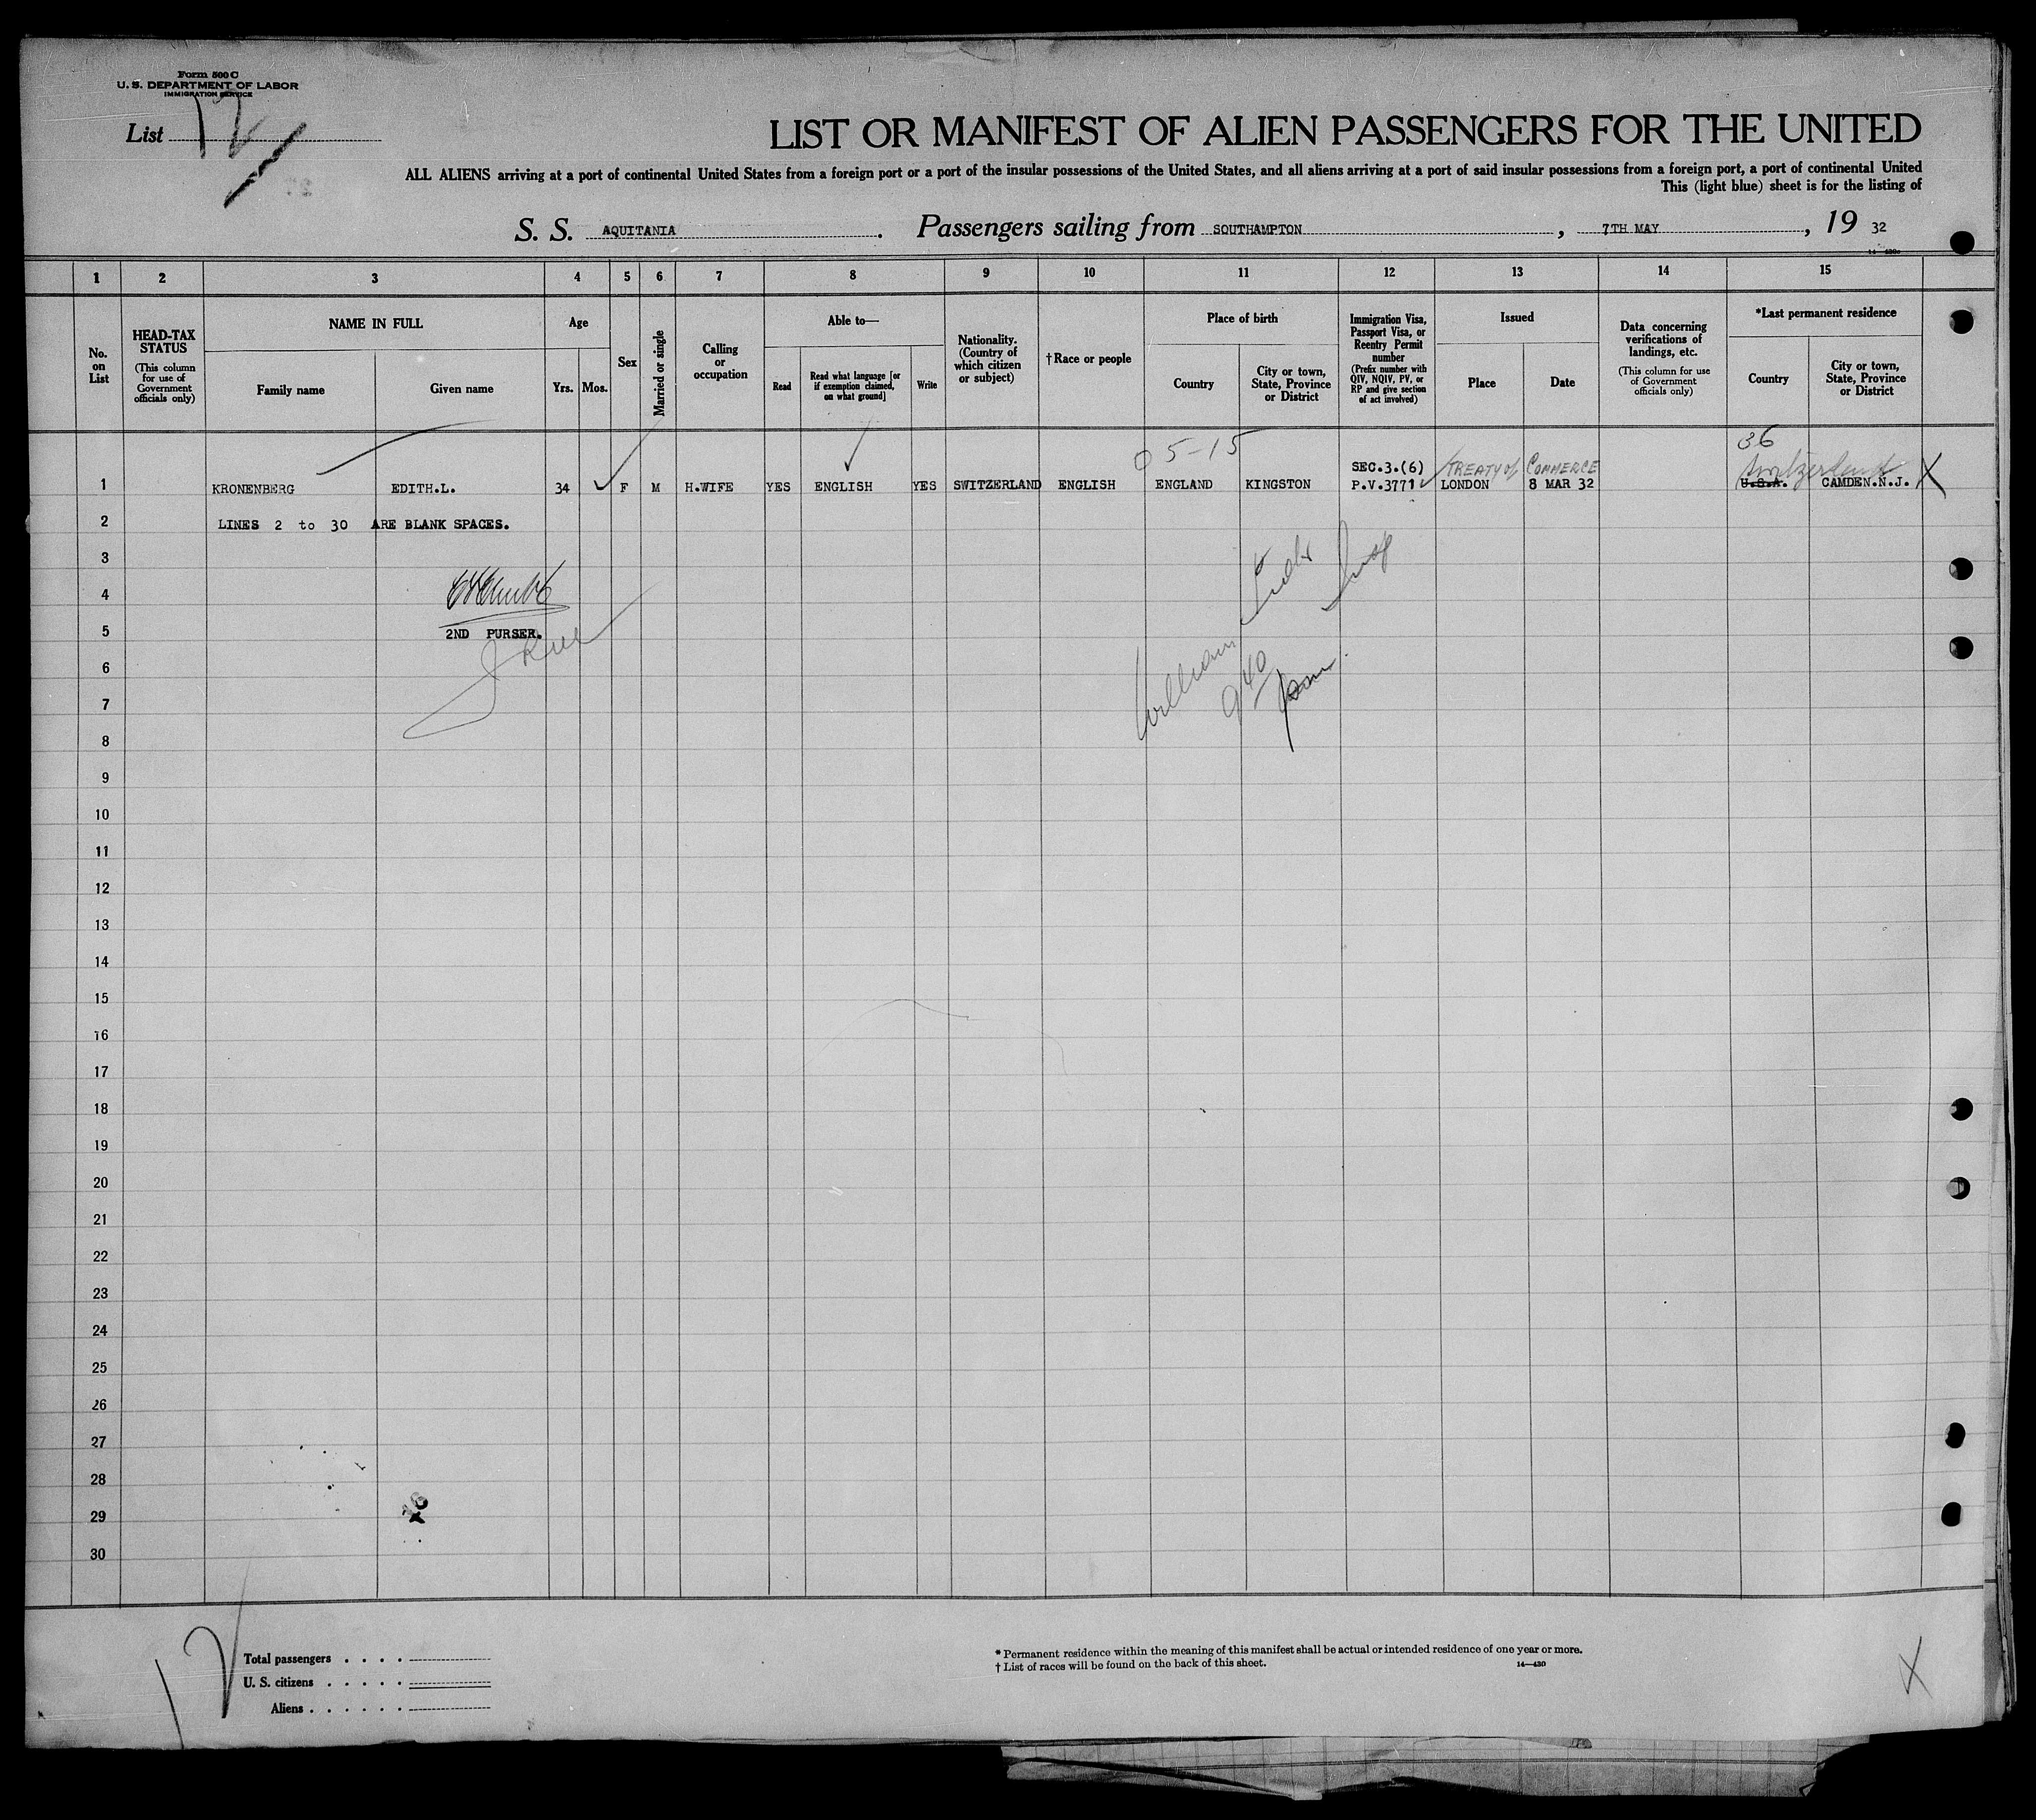 Form 500 C
U. S. DEPARTMENT OF LABOR
IMMIGRATION SERVICE
List 12
LIST OR MANIFEST OF ALIEN PASSENGERS FOR THE UNITED
ALL ALIENS arriving at a port of continental United States from a foreign port or a port of the insular possessions of the United States, and all aliens arriving at a port of said insular possessions from a foreign port, a port of continental United
This (light blue) sheet is for the listing of
S. S. AQUITANIA. Passengers sailing from SOUTHAMPTON, 7TH MAY, 19 32
1 2 3 4 5 6 7 8 9 10 11 12 13 14 15
No. on List
HEAD-TAX STATUS (This column for use of Government officials only)
NAME IN FULL
Family name
Given name
Age
Yrs. Mos.
Sex
Married or single
Calling or occupation
Able to—
Read
Read what language [or if exemption claimed, on what ground]
Write
Nationality. (Country of which citizen or subject)
†Race or people
Place of birth
Country
City or town, State, Province or District
Immigration Visa, Passport Visa, or Reentry Permit number (Prefix number with QIV, NQIV, PV, or RP and give section of act involved)
Issued
Place
Date
Data concerning verifications of landings, etc. (This column for use of Government officials only)
*Last permanent residence
Country
City or town, State, Province or District
05-15
36
SEC.3.(6) TREATY of COMMERCE Switzerland
1 KRONENBERG EDITH.L. 34 F M H.WIFE YES ENGLISH YES SWITZERLAND ENGLISH ENGLAND KINGSTON P.V.3771 LONDON 8 MAR 32 U.S.A. CAMDEN.N.J. X
2 LINES 2 to 30 ARE BLANK SPACES.
3
4
5 2ND PURSER.
6 William
7 940
8
9
10
11
12
13
14
15
16
17
18
19
20
21
22
23
24
25
26
27
28
29
30
12
Total passengers . . . .
U. S. citizens . . . . .
Aliens . . . . . .
* Permanent residence within the meaning of this manifest shall be actual or intended residence of one year or more.
† List of races will be found on the back of this sheet.
14—430
X